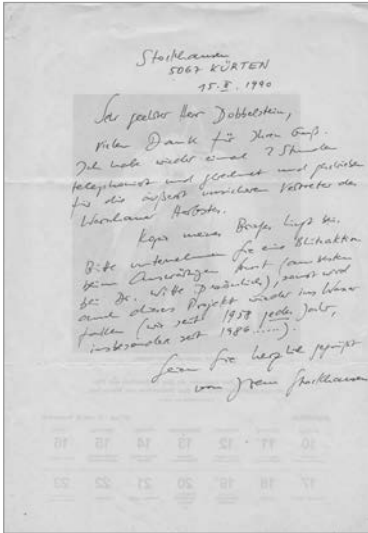 Stockhausen
5067 KÜRTEN
15.X.1990
Sehr geehrter Herr Dobbelstein,
vielen Dank für Ihren Gruß.
Ich habe wieder einmal 7 Stunden
telephoniert und geschrieben
für die äußerst unsicheren Vertreter des
Warschauer Herbstes.
Kopie meines Briefes liegt bei.
Bitte unternehmen Sie eine Blitzaktion
beim Auswärtigen Amt (am besten
bei Dr. Witte persönlich), sonst wird
auch dieses Projekt wieder ins Wasser
fallen (wie seit 1958 jedes Jahr,
insbesondere seit 1986......).
Seien Sie herzlich gegrüßt
von Ihrem Stockhausen
10 11 12 13 14 15 16
17 18 19 20 21 22 23